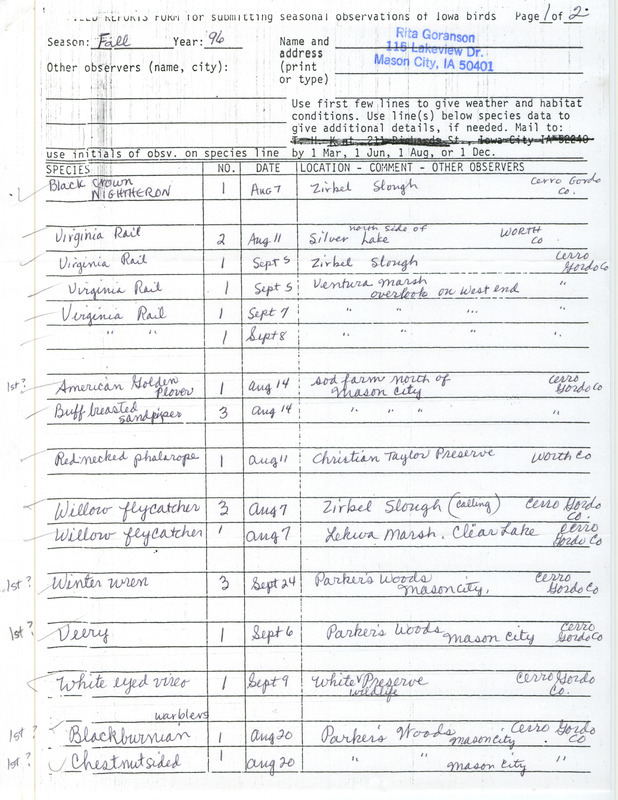 REPORTS FORM for submitting seasonal observations of Iowa birds Page 1 of 2
Season: Fall Year: '96 Name and address (print or type)
Rita Goranson
116 Lakeview Dr.
Mason City, IA 50401
Other observers (name, city):
Use first few lines to give weather and habitat
conditions. Use line(s) below species data to
give additional details, if needed. Mail to:
T. H. Kent, 211 Richards St., Iowa City IA 52240
use initials of obsv. on species line by 1 Mar, 1 Jun, 1 Aug, or 1 Dec.
SPECIES NO. DATE LOCATION - COMMENT - OTHER OBSERVERS
Black Crown NIGHTHERON 1 Aug 7 Zirbel Slough Cerro Gordo Co.
Virginia Rail 2 Aug 11 north side of Silver Lake WORTH Co
Virginia Rail 1 Sept 5 Zirbel Slough Cerro Gordo Co
Virginia Rail 1 Sept 5 Ventura marsh overlook on West end "
Virginia Rail 1 Sept 7 " " " "
" " 1 Sept 8 " " " "
1st? American Golden Plover 1 Aug 14 sod farm north of Mason City Cerro Gordo Co
Buff breasted sandpiper 3 Aug 14 " " " "
Red-necked phalarope 1 Aug 11 Christian Taylor Preserve Worth Co
Willow flycatcher 3 Aug 7 Zirbel Slough (calling) Cerro Gordo Co.
Willow flycatcher 1 Aug 7 Lekwa Marsh, Clear Lake Cerro Gordo Co
1st? Winter wren 3 Sept 24 Parker's Woods Mason City, Cerro Gordo Co
1st? Veery 1 Sept 6 Parker's Woods Mason City Cerro Gordo Co
White eyed vireo 1 Sept 9 White wildlife Preserve Cerro Gordo Co.
warblers
1st? Blackburnian 1 Aug 20 Parker's Woods Mason City Cerro Gordo Co
1st? Chestnut sided 1 Aug 20 " " Mason City "